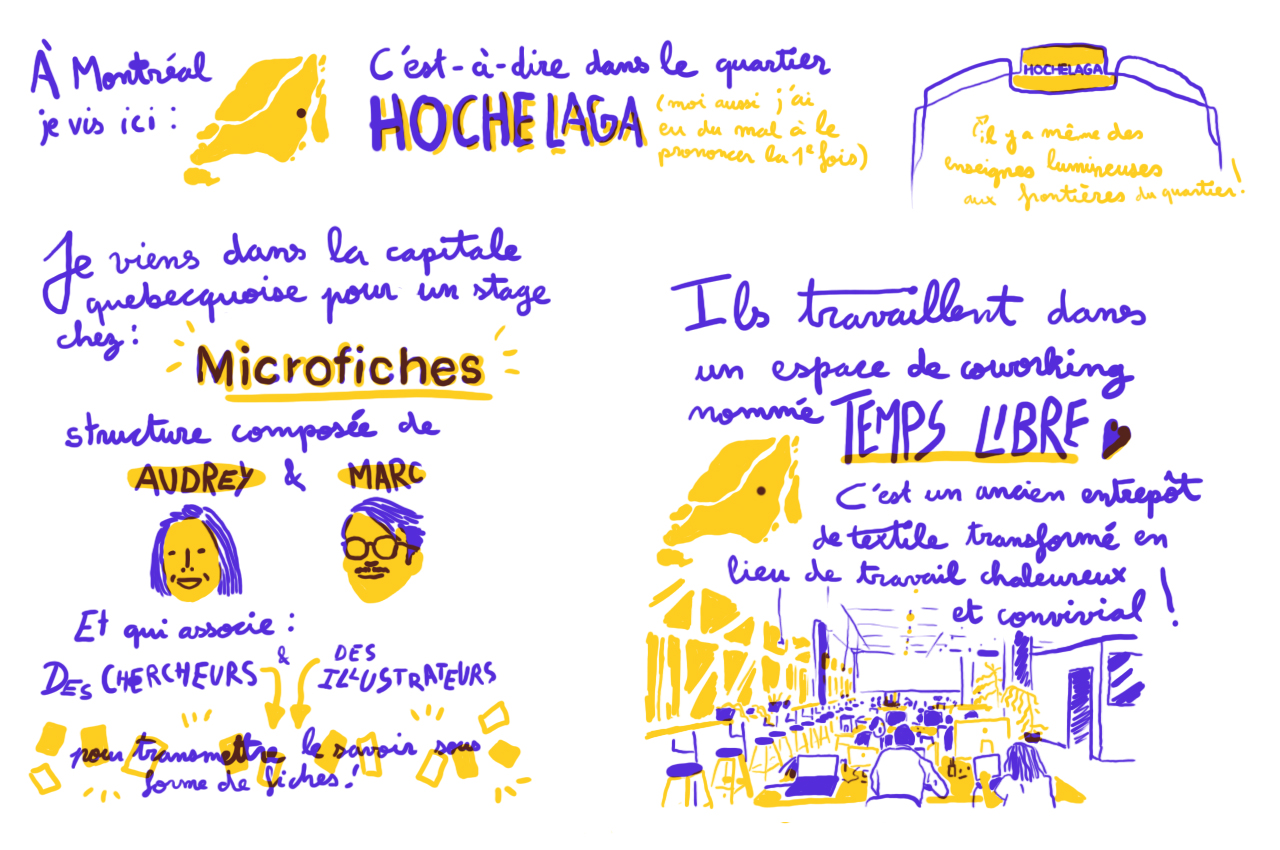 À Montréal
je vis ici :
C'est-à-dire dans le quartier
HOCHELAGA
(moi aussi j'ai
eu du mal à le
prononcer la 1e fois)
HOCHELAGA
il y a même des
enseignes lumineuses
aux frontières du quartier !
Je viens dans la capitale
quebecquoise pour un stage
chez :
Microfiches
structure composée de
AUDREY & MARC
Et qui associe :
DES CHERCHEURS & DES
ILLUSTRATEURS
pour transmettre le savoir sous
forme de fiches !
Ils travaillent dans
un espace de coworking
nommé TEMPS LIBRE
C'est un ancien entrepôt
de textile transformé en
lieu de travail chaleureux
et convivial !